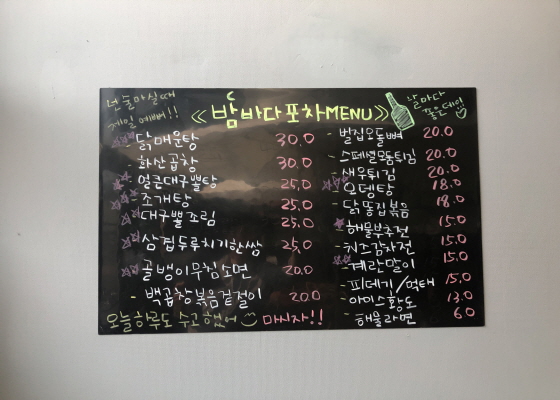 넌 술마실때
제일 예뻐!!
《밤바다포차MENU》
날마다
좋은데이
닭매운탕 30.0
화산곱창 30.0
얼큰대구뽈탕 25.0
조개탕 25.0
대구뽈조림 25.0
삼겹두루치기한쌈 25.0
골뱅이무침소면 20.0
백곱창볶음겉절이 20.0
오늘하루도 수고했어 마시자!!
벌집오돌뼈 20.0
스페셜모듬튀김 20.0
새우튀김 20.0
오뎅탕 18.0
닭똥집볶음 18.0
해물부추전 15.0
치즈감자전 15.0
계란말이 15.0
피데기/먹태 15.0
아이스황도 13.0
해물라면 6.0